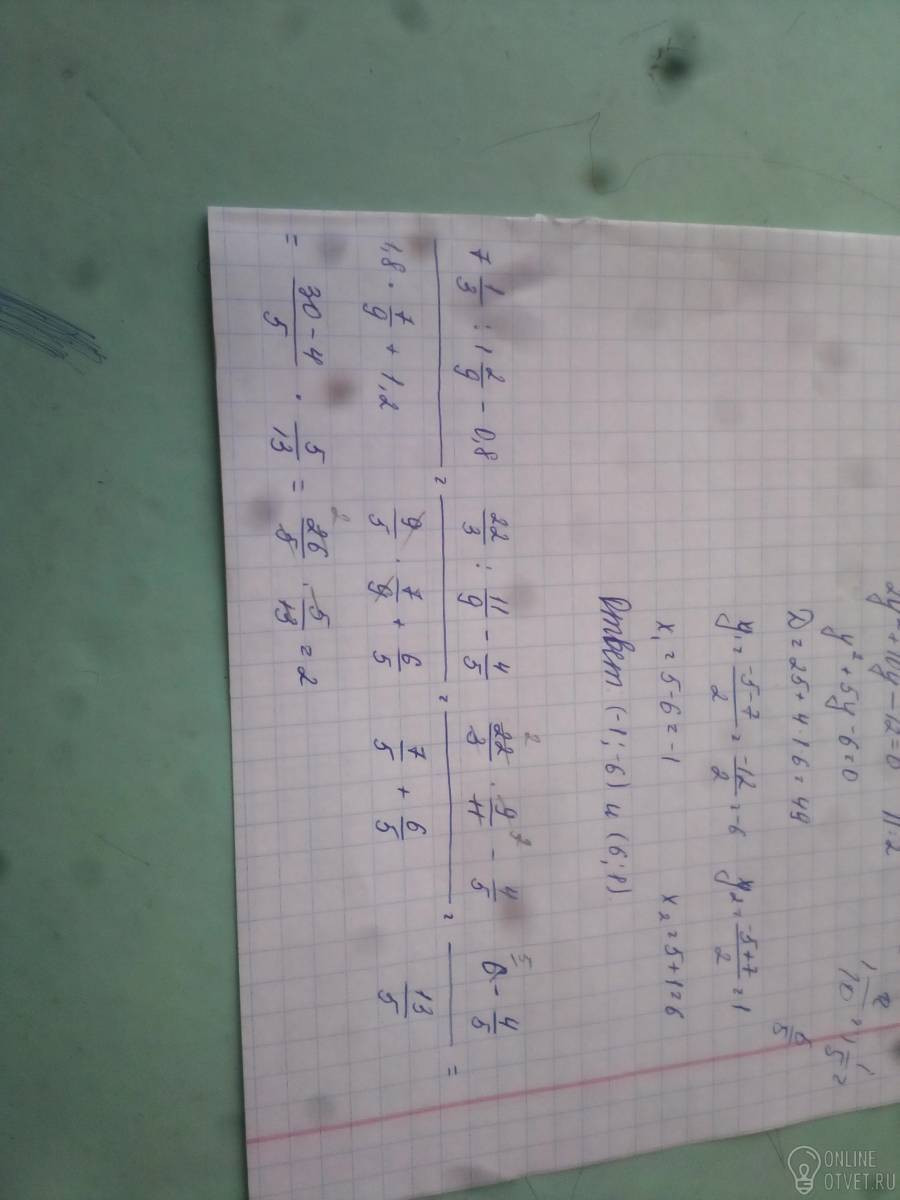 2y² + 10y - 12 = 0 | : 2
y² + 5y - 6 = 0
D = 25 + 4 · 1 · 6 = 49
y₁ = (-5-7)/2 = -12/2 = -6 y₂ = (-5+7)/2 = 1
x₁ = 5 - 6 = -1 x₂ = 5 + 1 = 6
Ответ. (-1; -6) и (6; 1)
(7 1/3 : 1 2/9 - 0,8)/(1,8 · 7/9 + 1,2) = (22/3 : 11/9 - 4/5)/(9/5 · 7/9 + 6/5) = (22/3 · 9/11 - 4/5)/(7/5 + 6/5) = (6 - 4/5)/(13/5) =
= (30-4)/5 · 5/13 = 26/5 · 5/13 = 2
ONLINE
OTVET.RU